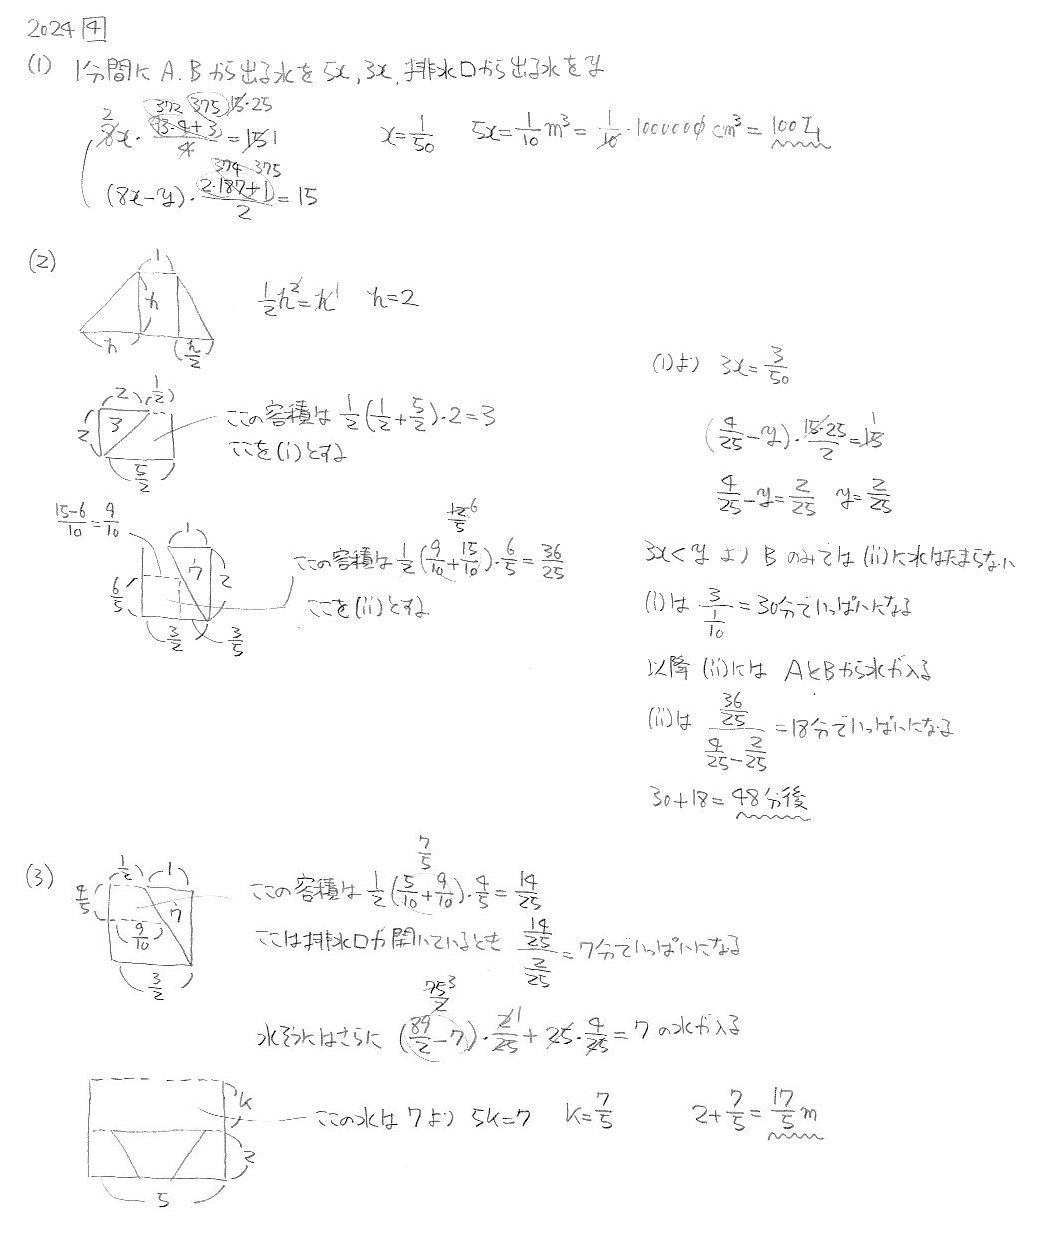 2024 4
(1) 1分間に A, B から出る水を 5x, 3x, 排水口から出る水を y
2 372 375 15・25
8x・(93・4+3)/4 = 15 1
x=1/50 5x=1/10 m³=1/10・1000000 cm³=100L
374 375
(8x-y)・(2・187+1)/2=15
(2)
1
h
h h/2
1/2h²=h 1 h=2
2 1/2
2 3
5/2
ここの容積は 1/2(1/2+5/2)・2=3
ここを(i)とする
(15-6)/10=9/10
1
7 2
6/5
3/2 3/5
12/5 6
ここの容積は 1/2(9/10+15/10)・6/5=36/25
ここを(ii)とする
(1)より 3x=3/50
(4/25-y)・(15・25)/2=15 1
4/25-y=2/25 y=2/25
3x<y より B のみでは (ii)に水はたまらない
(i)は 3/(1/10)=30分でいっぱいになる
以降 (ii)には AとBから水が入る
(ii)は (36/25)/(4/25-2/25)=18分でいっぱいになる
30+18=48分後
(3)
1/2 1
4/5 7
9/10
3/2
7/5
ここの容積は 1/2(5/10+9/10)・4/5=14/25
ここは排水口が開いているとき (14/25)/(2/25)=7分でいっぱいになる
75/2 3
水そうにはさらに (89/2-7)・2/25 1+25・4/25=7 の水が入る
k
2
5
ここの水は 7より 5k=7 k=7/5 2+7/5=17/5 m